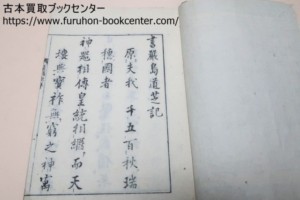 古本買取ブックセンター
https://www.furuhon-bookcenter.com/
書嚴島道芝記
原夫我千五百秋瑞
穗國者
神器相傳皇統相繼而天
壤與寶祚無窮之神